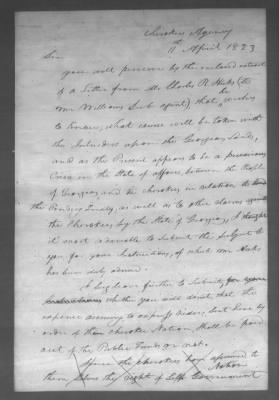 Cherokee Agency
11th April 1823
Sir
you will perceive by the enclosed extract
of a Letter from Mr Charles R. Hicks (to
Mr Williams Sub agent) that he wishes
to know, what course will be taken with
the Intruders upon the Georgia Land,
and as the Present appears to be a
Crisis in the State of affairs, between the
of Georgia and the Cherokees in relation to
the Pending Treaty, as well as to other claims
the Cherokees by the State of Georgia, I thought
it most advisable to submit the subject to
you for your Instructions, of which Mr Hicks
has been duly advised.
I beg leave further to submit,
whether you will direct, that the
expence accruing to express riders, sent here by
order of the Cherokee Nation, shall be paid
out of the Public Funds or not.
Since the Cherokees have assumed to
Nation
them the right of Self Government